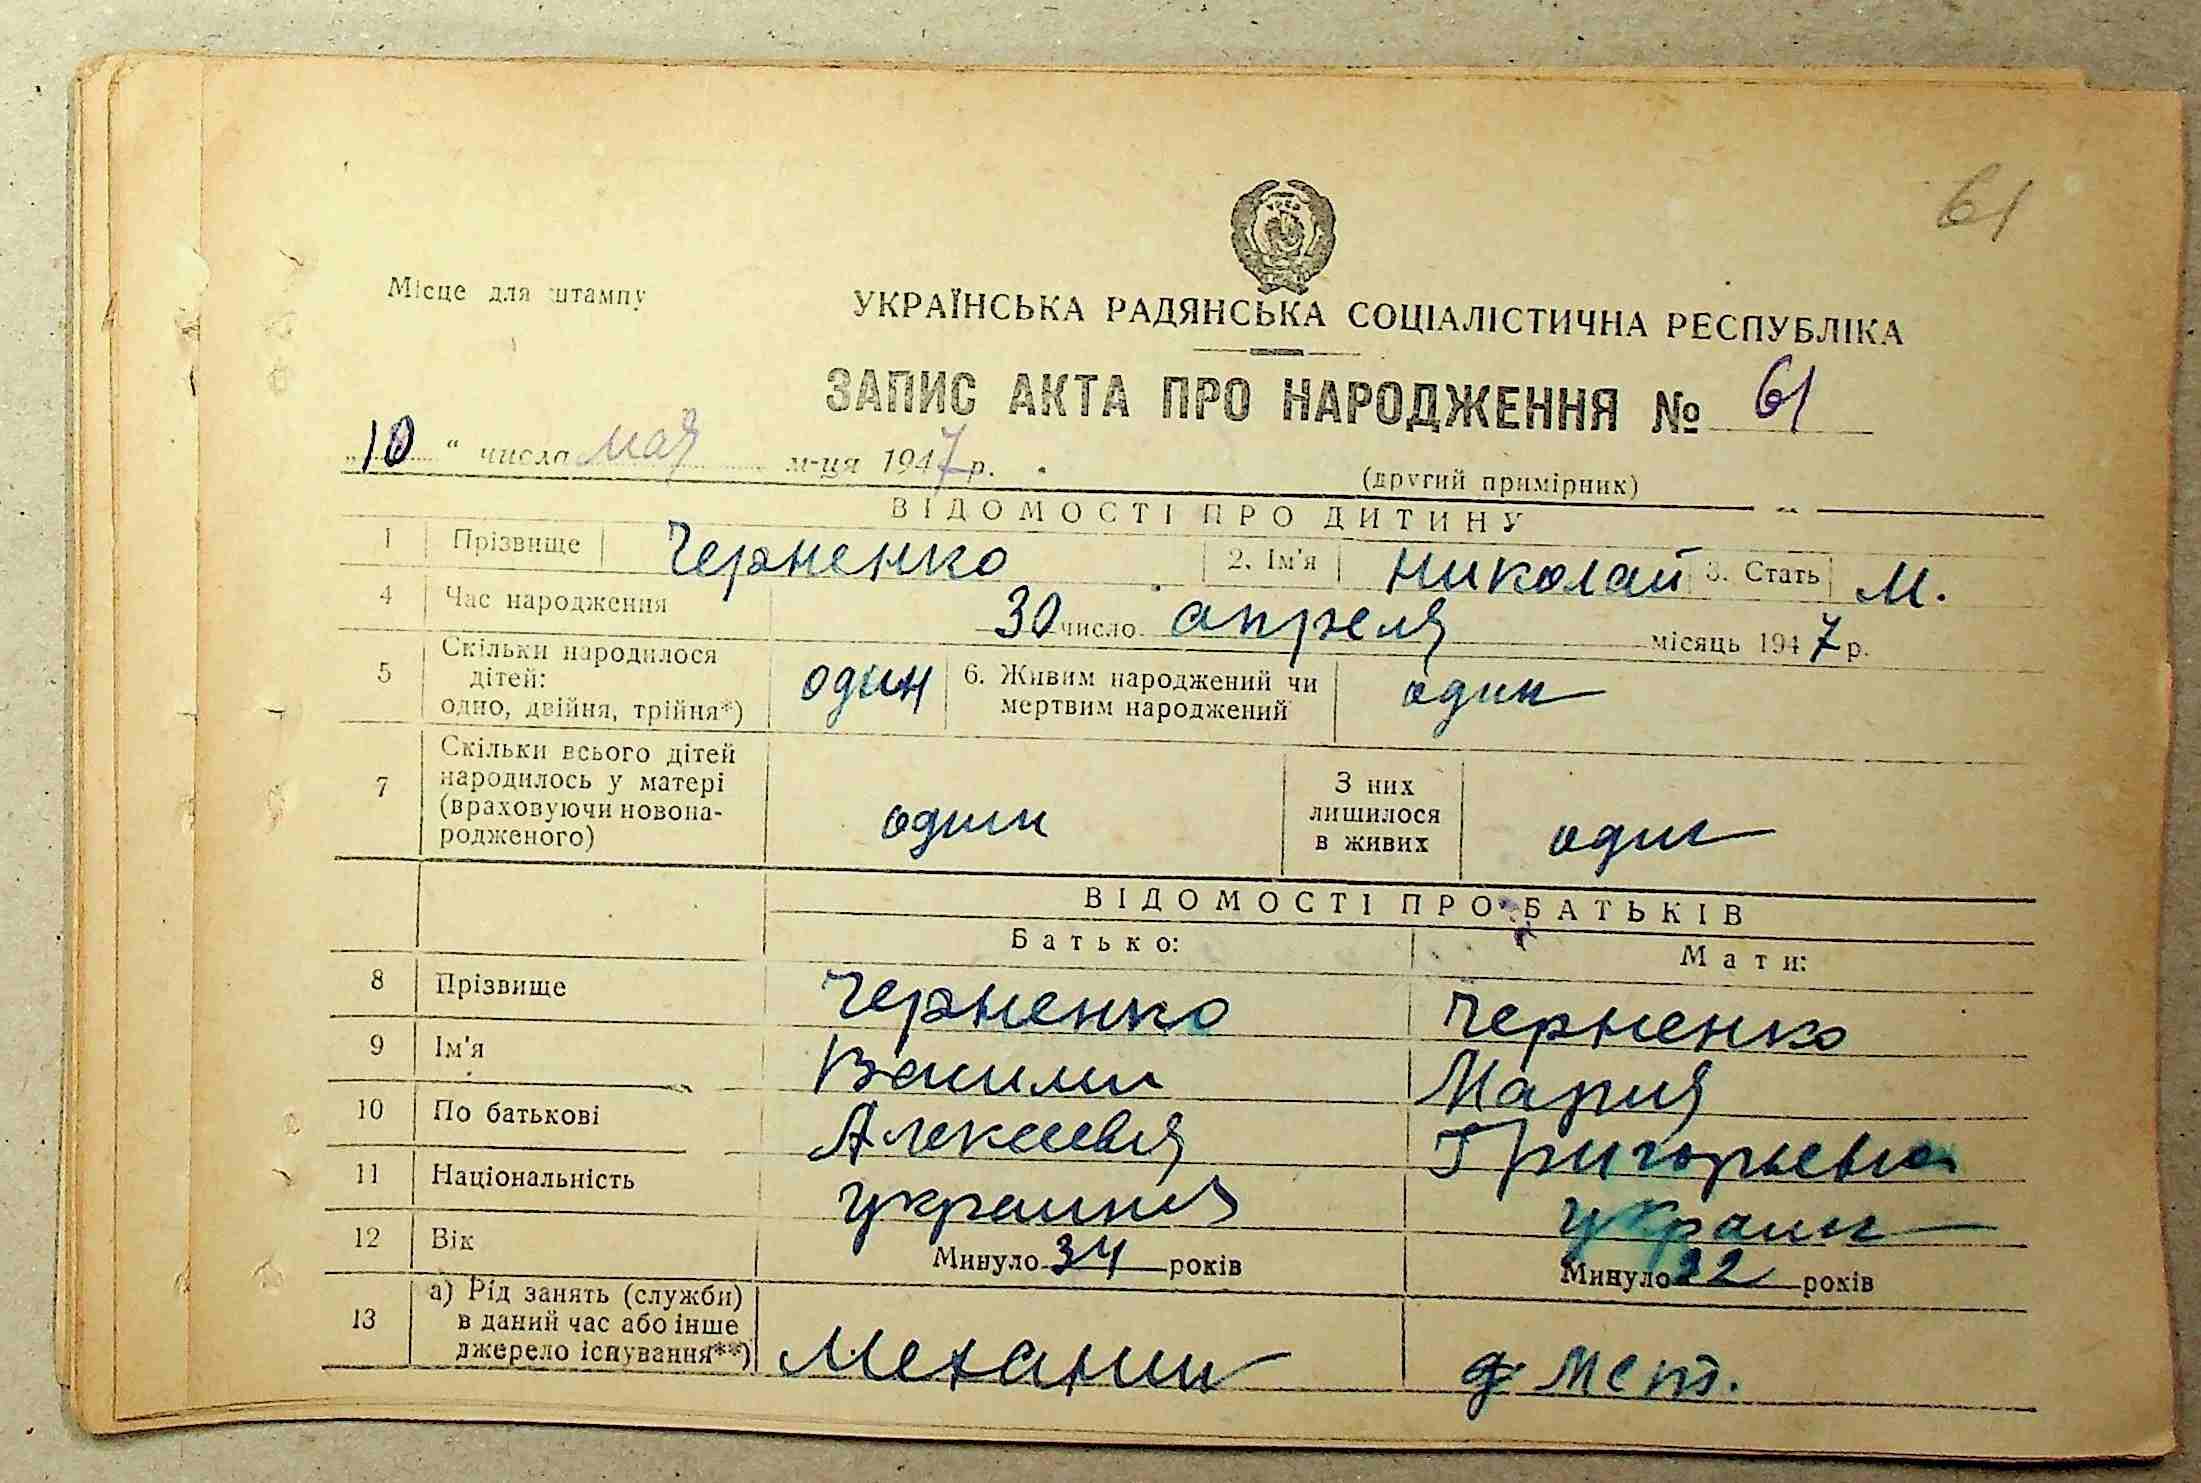 61
Місце для штампу
УКРАЇНСЬКА РАДЯНСЬКА СОЦІАЛІСТИЧНА РЕСПУБЛІКА
ЗАПИС АКТА ПРО НАРОДЖЕННЯ № 61
„10“ числа мая м-ця 1947 р.
(другий примірник)
ВІДОМОСТІ ПРО ДИТИНУ
1 Прізвище Черненко 2. Ім'я Николай 3. Стать М.
4 Час народження 30 число апреля місяць 1947 р.
5 Скільки народилося дітей: одно, двійня, трійня*) один 6. Живим народжений чи мертвим народжений один
7 Скільки всього дітей народилось у матері (враховуючи новонародженого) один З них лишилося в живих один
ВІДОМОСТІ ПРО БАТЬКІВ
Батько: Мати:
8 Прізвище Черненко Черненко
9 Ім'я Васили Мария
10 По батькові Григорьевна
11 Національність
12 Вік Минуло 34 років Минуло 22 років
13 а) Рід занять (служби) в даний час або інше джерело існування**) Механик